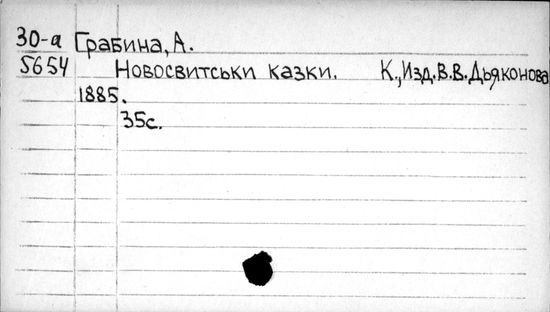 30-а Грабина, А.
5654 Новосвитськи казки. К., Изд. В.В. Дьяконова
1885.
35с.